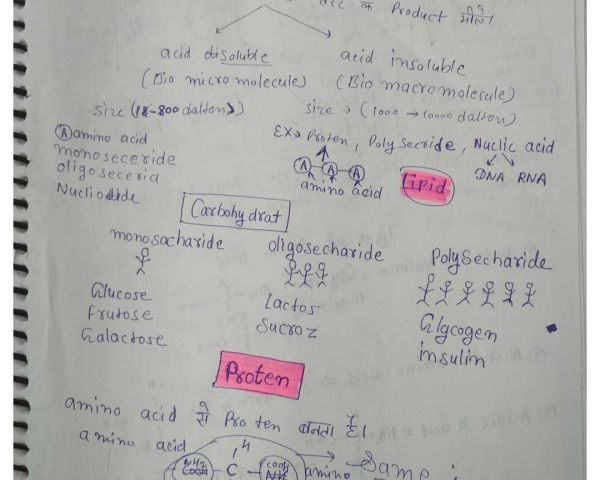 क Product
acid disoluble
acid insoluble
(Bio micro molecule)
(Bio macromolecule)
Size (18-800 daltons)
Size → (1000 → 10000 dalton)
Ⓐ amino acid
monoseceride
oligoseceria
EX→ Proten, Poly Secride, Nuclic acid
Ⓐ-Ⓐ-Ⓐ
amino acid
Lipid
DNA RNA
Carbohydrat
monosacharide
oligosecharide
PolySecharide
Glucose
Frutose
Galactose
Lactos
Sucroz
Glycogen
insulin
Proten
amino acid से Proten बनता है।
amino acid
H
NH2
C
COOH
amino
Same